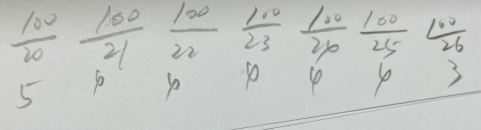 100/20 100/21 100/22 100/23 100/24 100/25 100/26
5 4 4 4 4 4 3